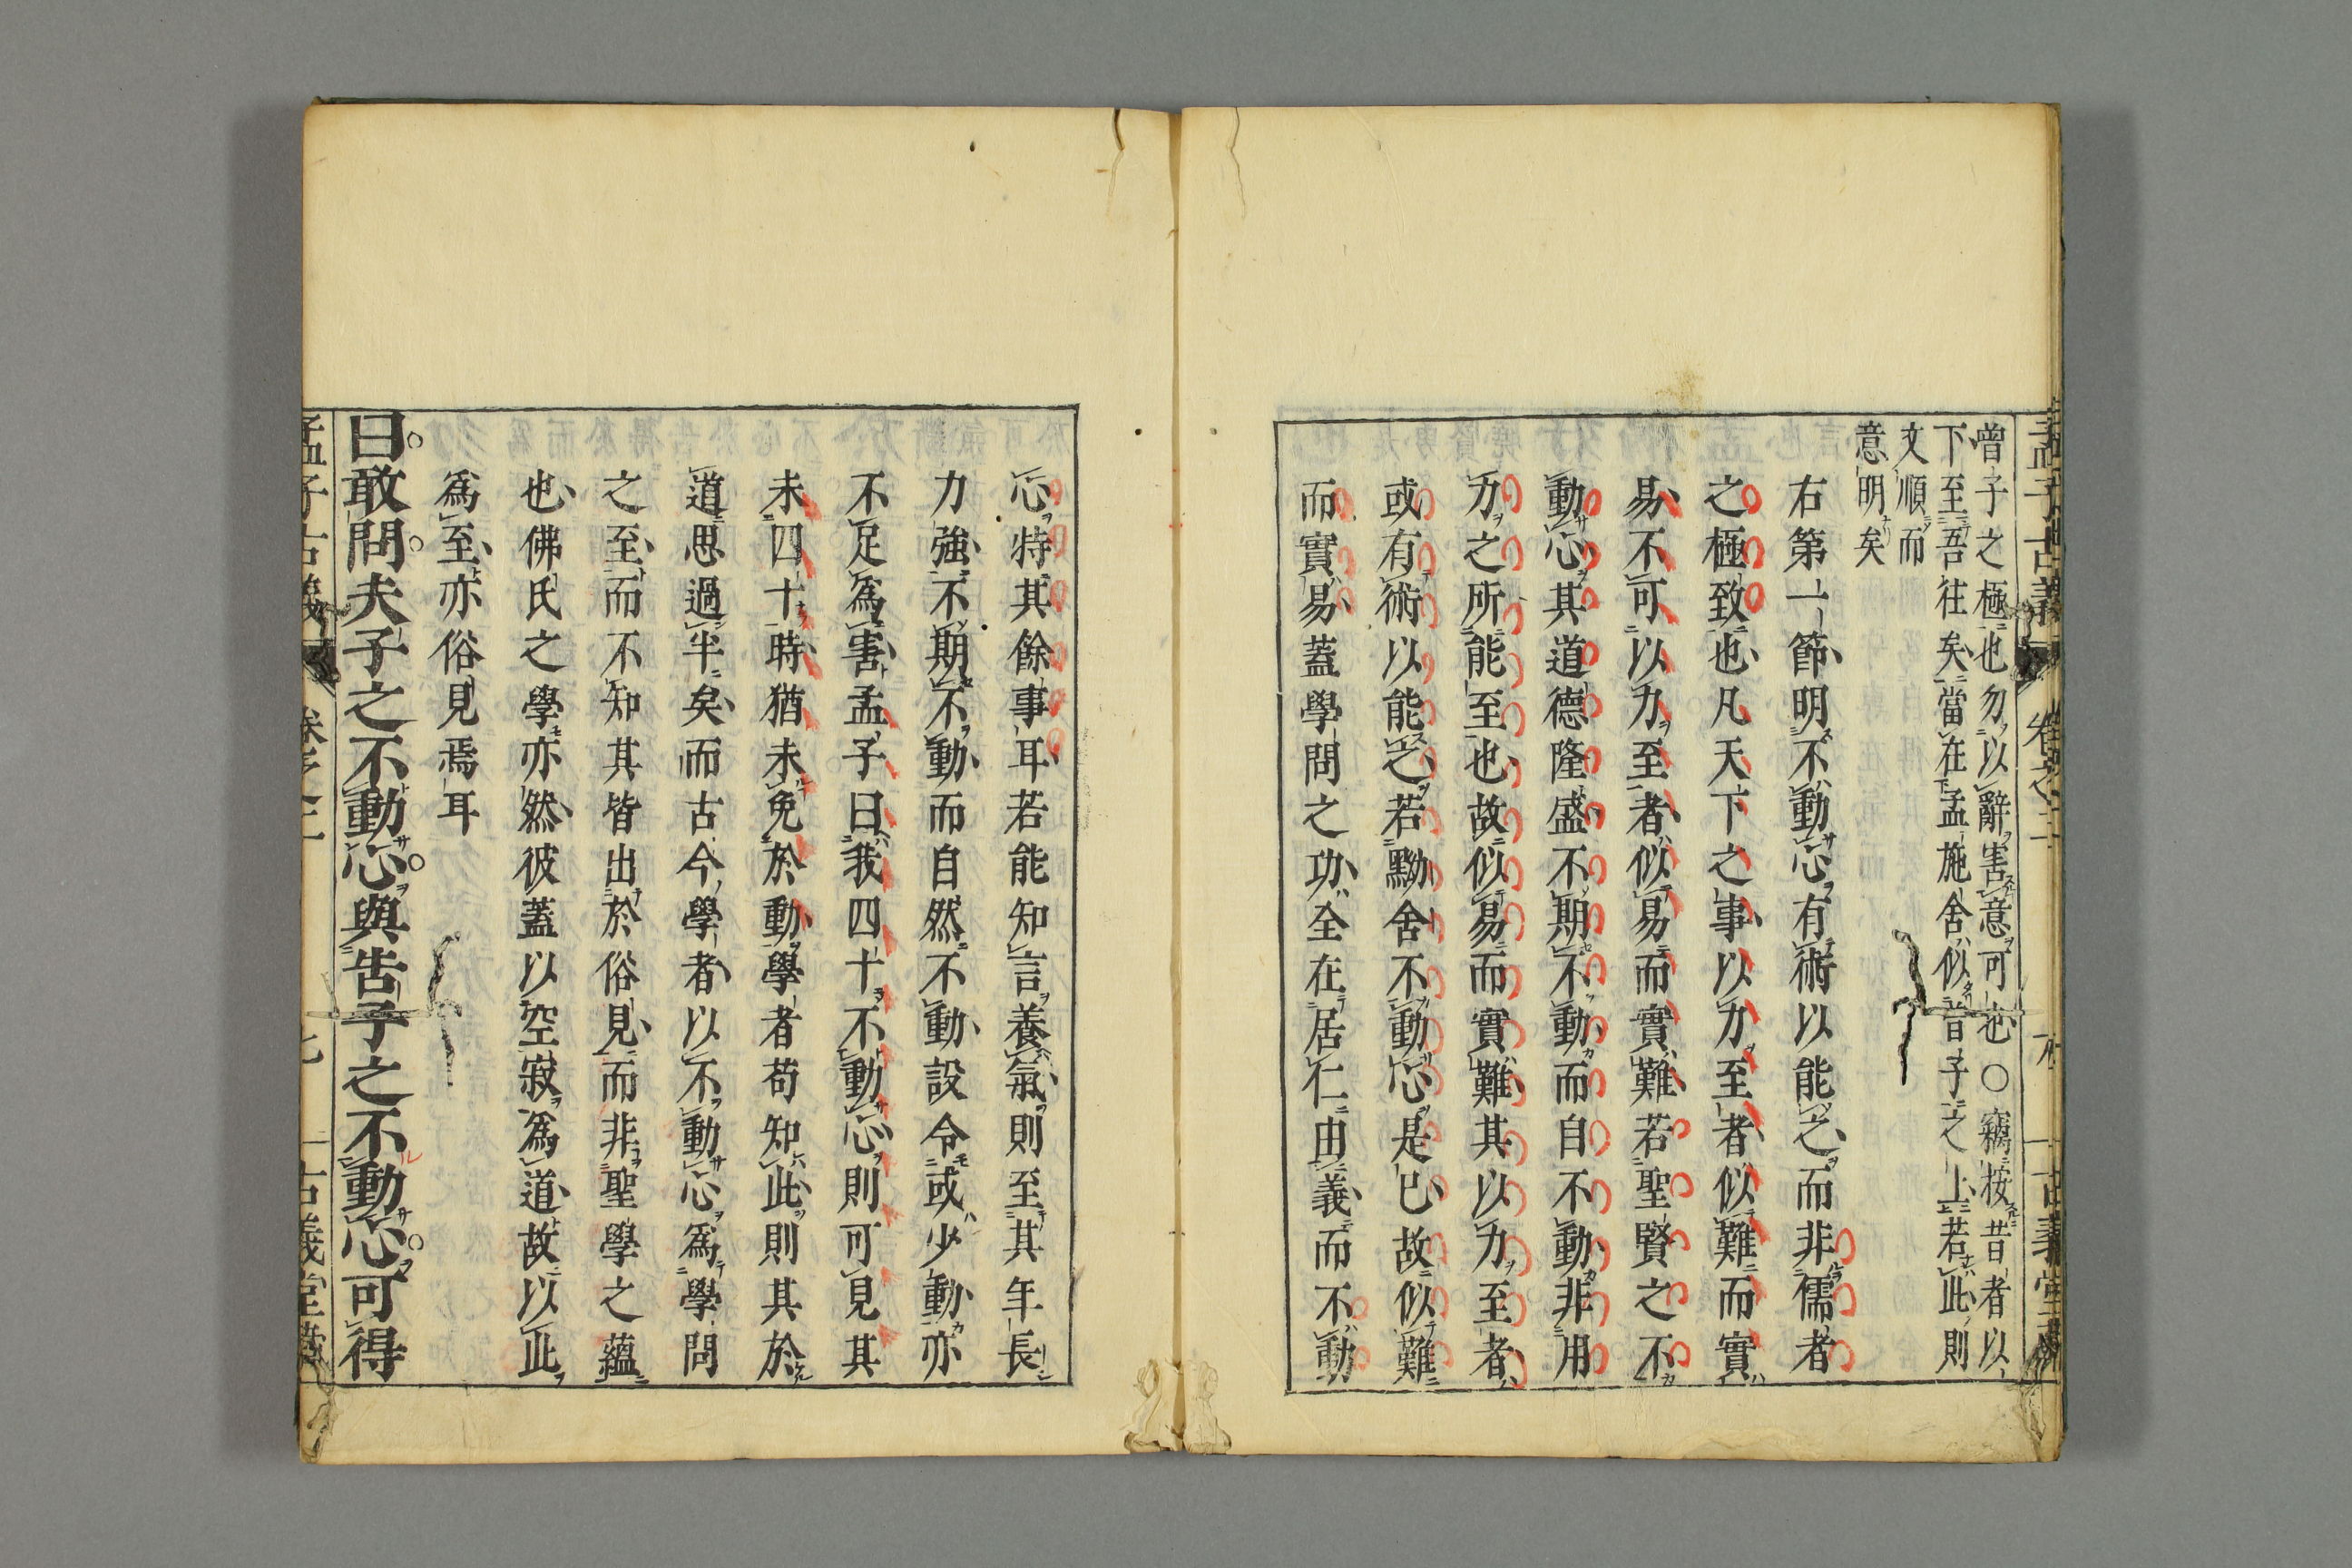 曾子之極也勿以辭害意可也〇竊按昔者以
下至吾往矣當在孟施舍似曾子之上若此則
文順而
意明矣
右第一節明不動心有術以能之而非儒者
之極致也凡天下之事以力至者似難而實
易不可以力至者似易而實難若聖賢之不
動心其道德隆盛不期不動而自不動非用
力之所能至也故似易而實難其以力至者
或有術以能之若黝舍不動心是已故似難
而實易蓋學問之功全在居仁由義而不動
心特其餘事耳若能知言養氣則至其年長
力強不期不動而自然不動設令或少動亦
不足為害孟子曰我四十不動心則可見其
未四十時猶未免於動學者苟知此則其於
道思過半矣而古今學者以不動心為學問
之至而不知其皆出於俗見而非聖學之蘊
也佛氏之學亦然彼蓋以空寂為道故以此
為至亦俗見焉耳
曰敢問夫子之不動心與告子之不動心可得